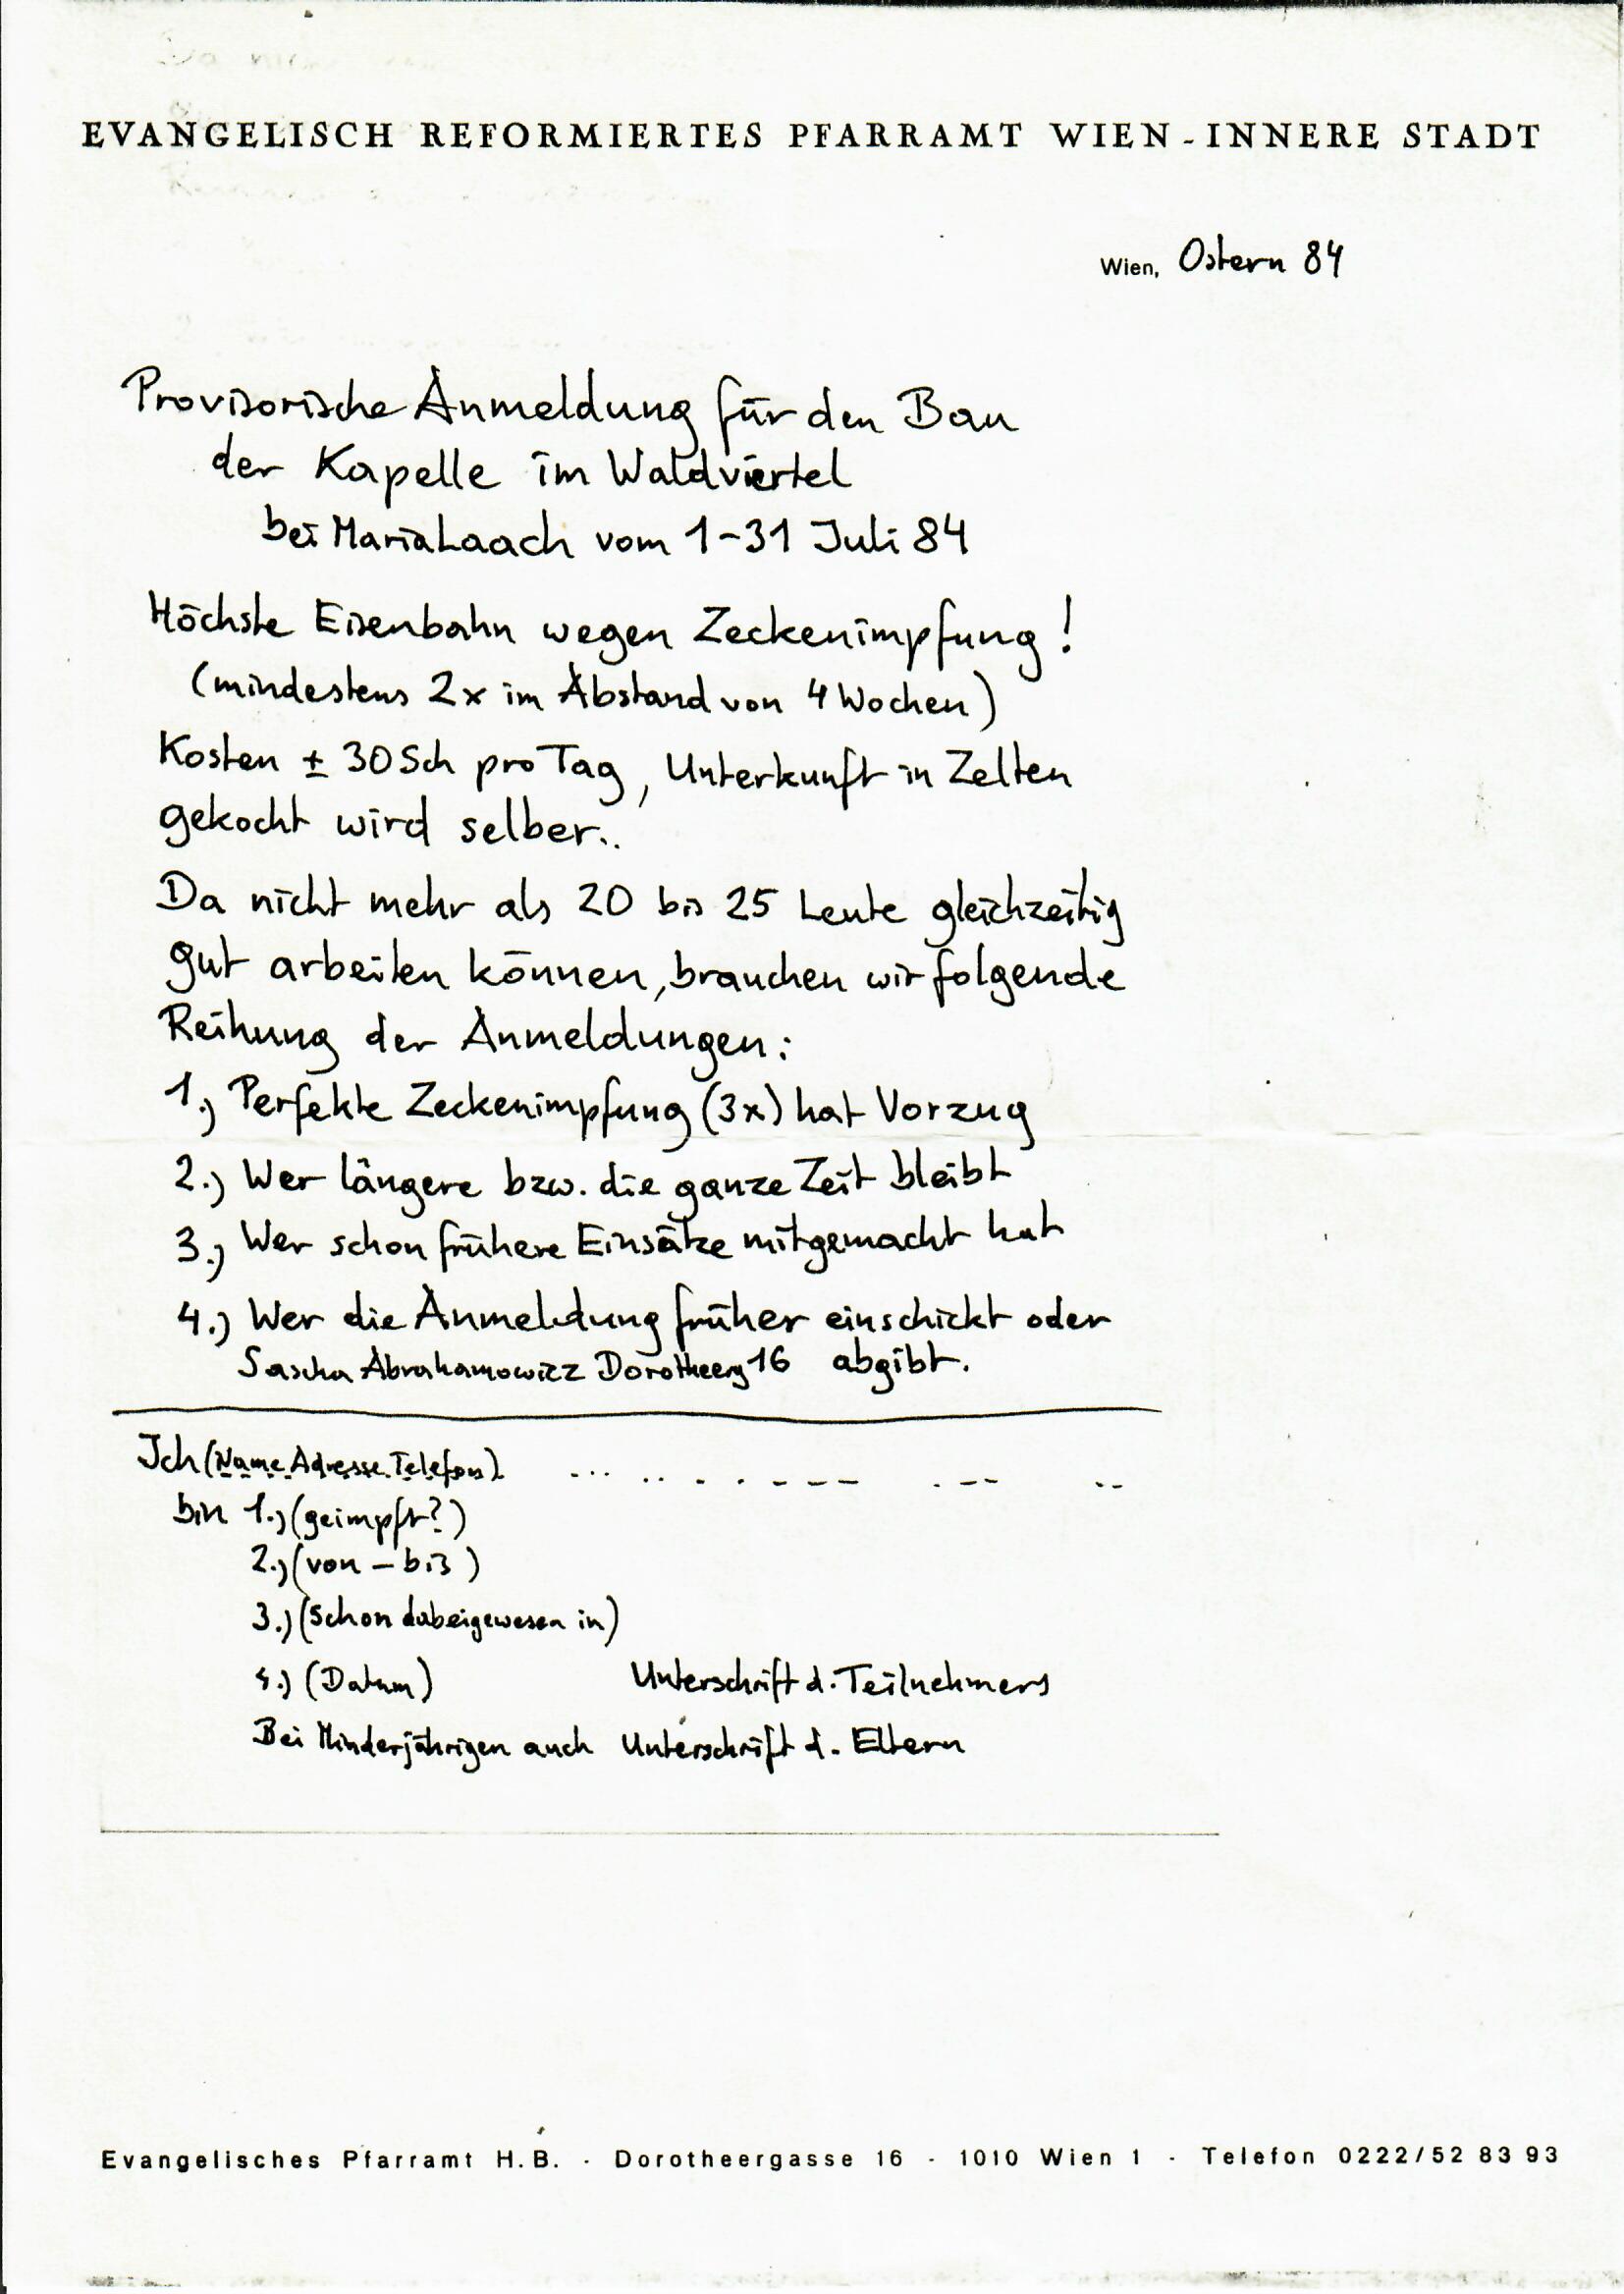 EVANGELISCH REFORMIERTES PFARRAMT WIEN-INNERE STADT
Wien, Ostern 84
Provisorische Anmeldung für den Bau
der Kapelle im Waldviertel
bei Maria Laach vom 1-31 Juli 84
Höchste Eisenbahn wegen Zeckenimpfung!
(mindestens 2x im Abstand von 4 Wochen)
Kosten ± 30 Sch pro Tag, Unterkunft in Zelten
gekocht wird selber..
Da nicht mehr als 20 bis 25 Leute gleichzeitig
gut arbeiten können, brauchen wir folgende
Reihung der Anmeldungen:
1.) Perfekte Zeckenimpfung (3x) hat Vorzug
2.) Wer längere bzw. die ganze Zeit bleibt
3.) Wer schon frühere Einsätze mitgemacht hat
4.) Wer die Anmeldung früher einschickt oder
Sascha Abrahamowicz Dorotheerg 16 abgibt.
Ich (Name Adresse Telefon) ... .. . . - - - . -- ..
bin 1.) (geimpft?)
2.) (von - bis)
3.) (Schon dabeigewesen in)
4.) (Datum) Unterschrift d. Teilnehmers
Bei Minderjährigen auch Unterschrift d. Eltern
Evangelisches Pfarramt H.B. - Dorotheergasse 16 - 1010 Wien 1 - Telefon 0222/52 83 93